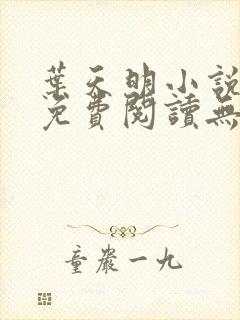 葉天明小說
免費閱讀無
童嚴一九